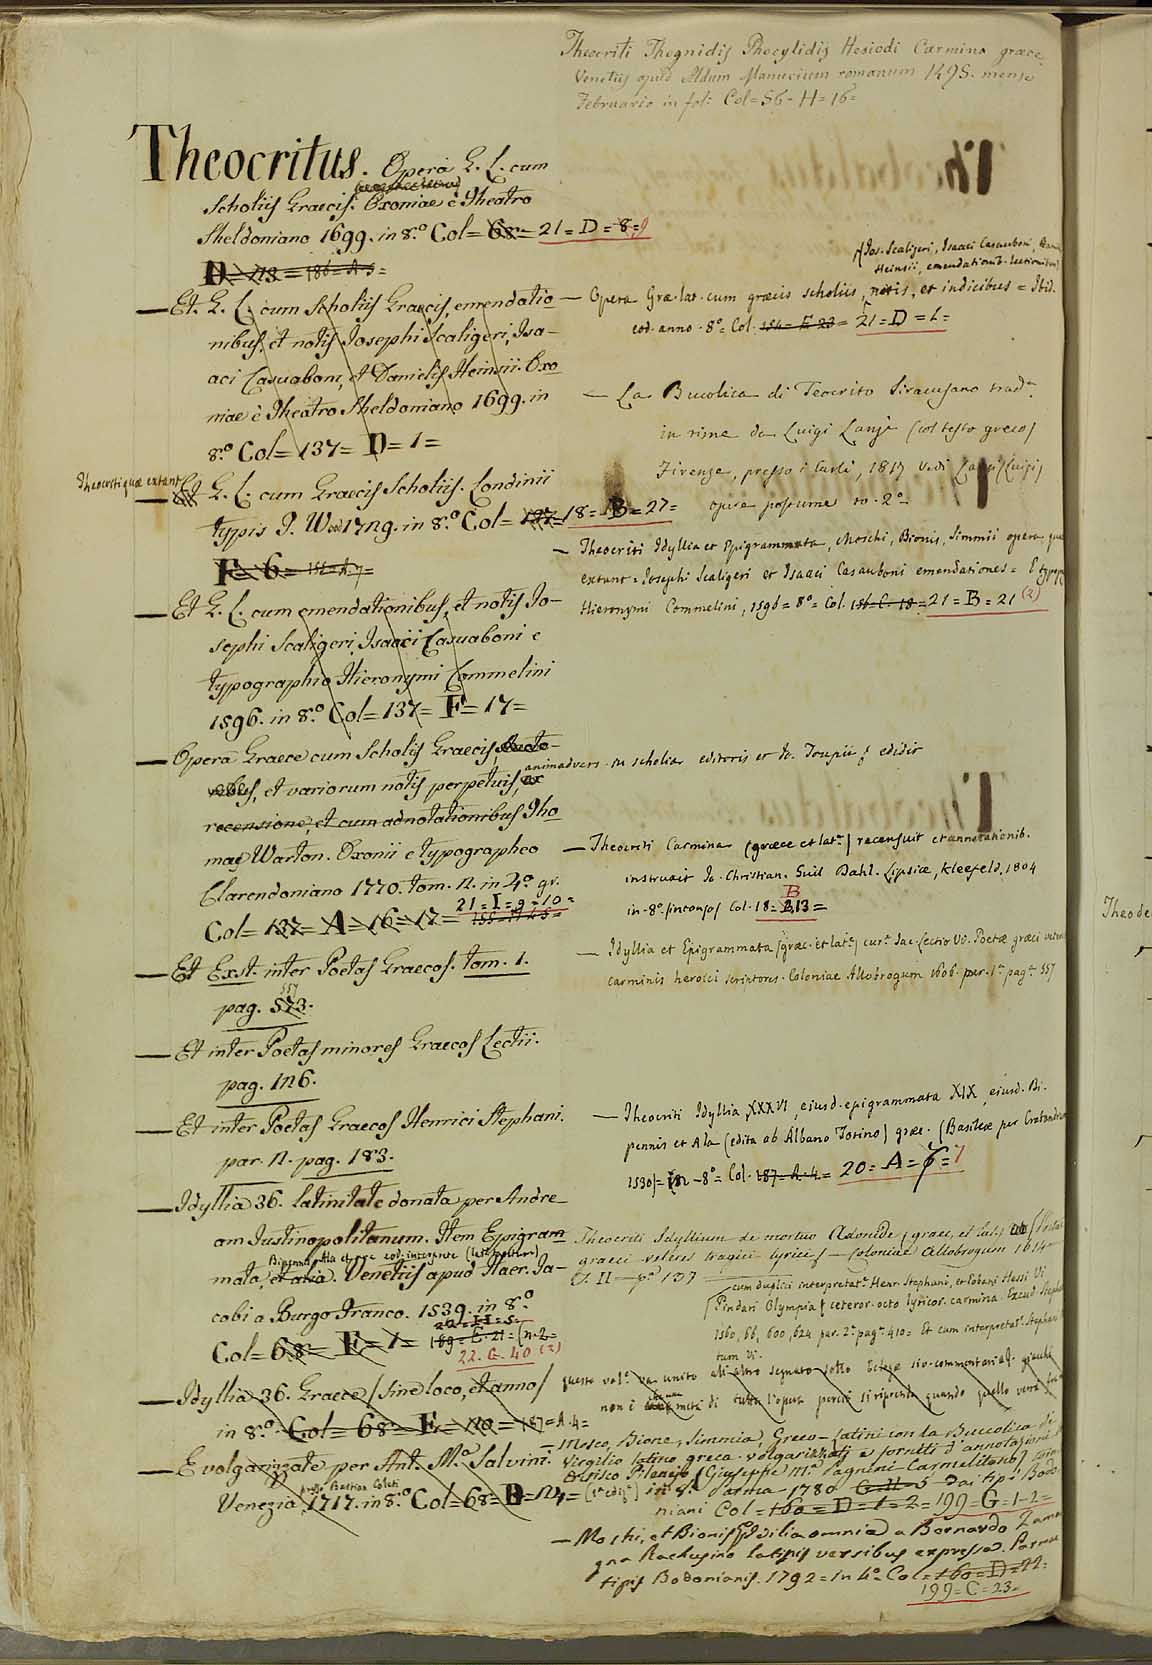 Theocriti Theognidis Phocylidis Hesiodi Carmina graece,
Venetiis apud Aldum Manucium romanum 1495. mense
Februario in fol: Col=56-H=16=
Theocritus. Opera G. L. cum
Scholiis Graecis. Oxoniae è Theatro
Sheldoniano 1699. in 8.o Col= 68= 21=D=8=9
D= 113 = 186=A=5=
Et G. L. cum Scholiis Graecis, emendatio
nibus, et notis Josephi Scaligeri, Isa-
aci Casuaboni, et Danielis Heinsii. Oxo
niae è Theatro Sheldoniano 1699. in
8.o Col= 137= D= 1=
Theocriti quae extant
Et G. L. cum Graecis Scholiis. Londinii
typis J. W 1729. in 8.o Col= 137= 18= B= 27=
F= 6=
Et G. L. cum emendationibus, et notis Jo-
sephi Scaligeri, Isaaci Casuaboni e
typographio Hieronymi Commelini
1596. in 8.o Col= 137= F= 17=
Opera Graece cum Scholiis Graecis,
et variorum notis perpetuis, ex
animadvers. in scholia editoris et Jo. Toupii; edidit
recensione, et cum adnotationibus Tho
mae Warton. Oxonii e typographeo
Clarendoniano 1770. tom. 2. in 4.o gr.
21=I=9=10=
Col= 137= A= 16= 17=
Et Exst. inter Poetas Graecos. tom. 1.
557
pag. 573.
Et inter Poetas minores Graecos Lectii.
pag. 126.
Et inter Poetas Graecos Henrici Stephani.
par. 2. pag. 183.
Idyllia 36. latinitate donata per Andre-
am Justinopolitanum. Item Epigram
mata, et alia. Venetiis apud Haer. Ja-
cobi a Burgo Franco. 1539. in 8.o
Col= 68= F= 1= 189= E. 21=
22. G. 40 (2)
Idyllia 36. Graece (sine loco, et anno)
in 8.o Col= 68= E= 187=A.4=
E volgarizzate per Ant. M.a Salvini.
Venezia 1717. in 8.o Col= 68= D= 124=
Jos. Scaligeri, Isaaci Casauboni,
Heinsii, emendationib. lectionibus
Opera Grae. lat. cum graecis scholiis, notis, et indicibus = Ibid.
eod. anno. 8o= Col. 21=D=1=
La Bucolica di Teocrito Siracusano trad.
in rime da Luigi Lanzi (col testo greco)
Firenze, presso i Carli, 1817 Vedi Lanzi (Luigi)
opere postume to. 2o
Theocriti Idyllia et Epigrammata, Moschi, Bionis, Simmii opera quae
extant = Josephi Scaligeri et Isaaci Casauboni emendationes = E typogr
Hieronymi Commelini, 1596= 8o= Col. 21=B=21 (2)
Theocriti Carmina (graece et lat.) recensuit et annotationib.
instruxit Jo. Christian. Guil Dahl. Lipsiae, Kleefeld, 1804
in-8o. (intonso) Col. 18= B 13=
Idyllia et Epigrammata (graec. et lat.) cur. Jac. Lectio V. Poetae graeci veteres
carminis heroici scriptores. Coloniae Allobrogum 1606. par. 1a pag. 557
Theocriti Idyllia XXXVI, ejusd. epigrammata XIX, ejusd. Bi.
pennis et Ala (edita ab Albano Torino) graec. (Basileae per Cratandrum
1530)= in-8o= Col. 187=A.4= 20=A=6=7
Theocriti Idyllium de mortuo Adonide (graec. et lat.)
graeci veteres tragici lyrici) Coloniae Allobrogum 1614
T. II pa 137
cum duplici interpretat. Henr. Stephani, et Eobani Hessi
Pindari Olympia et ceteror. octo lyricor. carmina. Excud. Steph
1560, 66, 600, 624 par. 2a pag. 410= Et cum interpretat. Stephani
questo vol. va unito all'altro segnato sotto
non è di tutta l'opera perciò si riponga quando quello verrà
Mosco, Bione, Simmia, Greco-Latini con la Buccolica di
Virgilio latino greca volgarizzati e forniti d'annotazioni
Eritisco Pilenejo (Giuseppe M.a Pagnini Carmelitano)
in 8o. Parma 1780 Dai tipi Bodo
niani Col= 160= D= 1= 2= 199= G= 1-2=
Moschi, et Bionis Idyllia omnia a Bernardo Zama
gna Rachusino latinis versibus expressa. Parmae
tipis Bodonianis. 1792= in 4o Col= 160= D= 22=
199= C= 23=
Theode